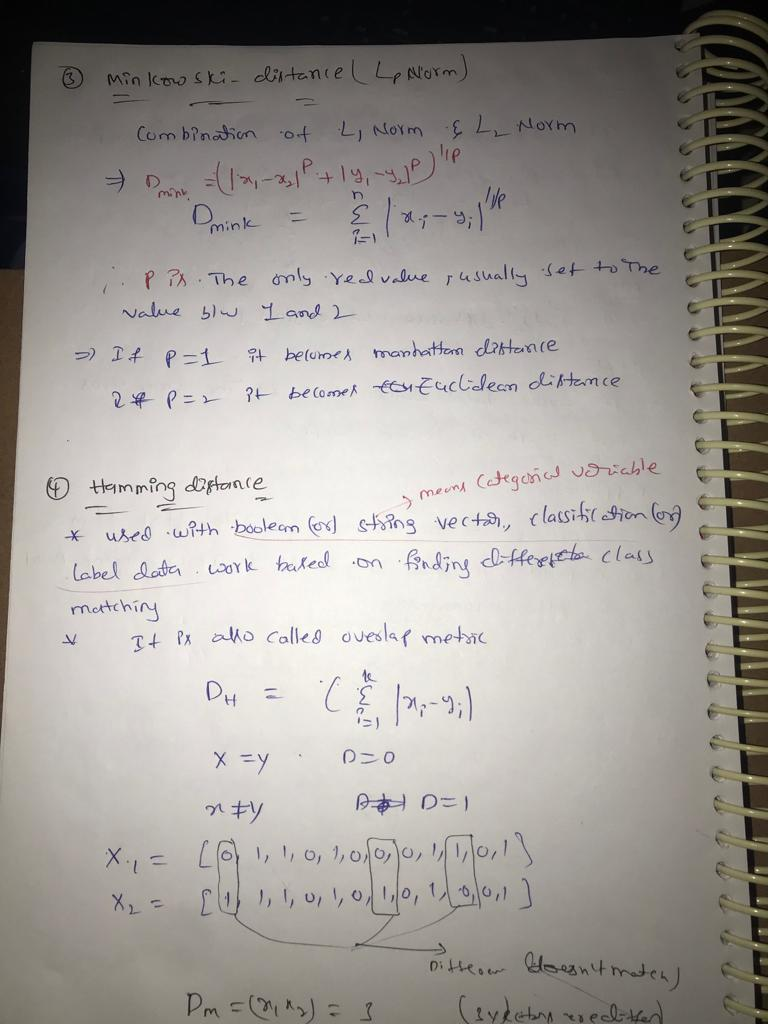 ③ Minkowski - distance (Lp Norm)
Combination of L1 Norm & L2 Norm
⇒ Dmink = (|x1-x2|^P + |y1-y2|^P)^1/P
Dmink = n Σ i=1 |xi - yi|^1/P
∴ P is The only real value, usually set to The
value b/w 1 and 2
⇒ If P=1 it becomes manhattan distance
If P=2 it becomes Euclidean distance
④ Hamming distance
→ means Categorical variable
* used with boolean (or) string vector, classification (or)
Label data work based on finding different class
matching
* It is also called overlap metric
DH = ( k Σ i=1 |xi - yi|
X = y . D=0
x ≠ y D=1
X1 = [0, 1, 1, 0, 1, 0, 0, 0, 1, 1, 0, 1]
X2 = [1, 1, 1, 0, 1, 0, 1, 0, 1, 0, 0, 1]
(doesn't match)
Dm = (x1 x2) = 3